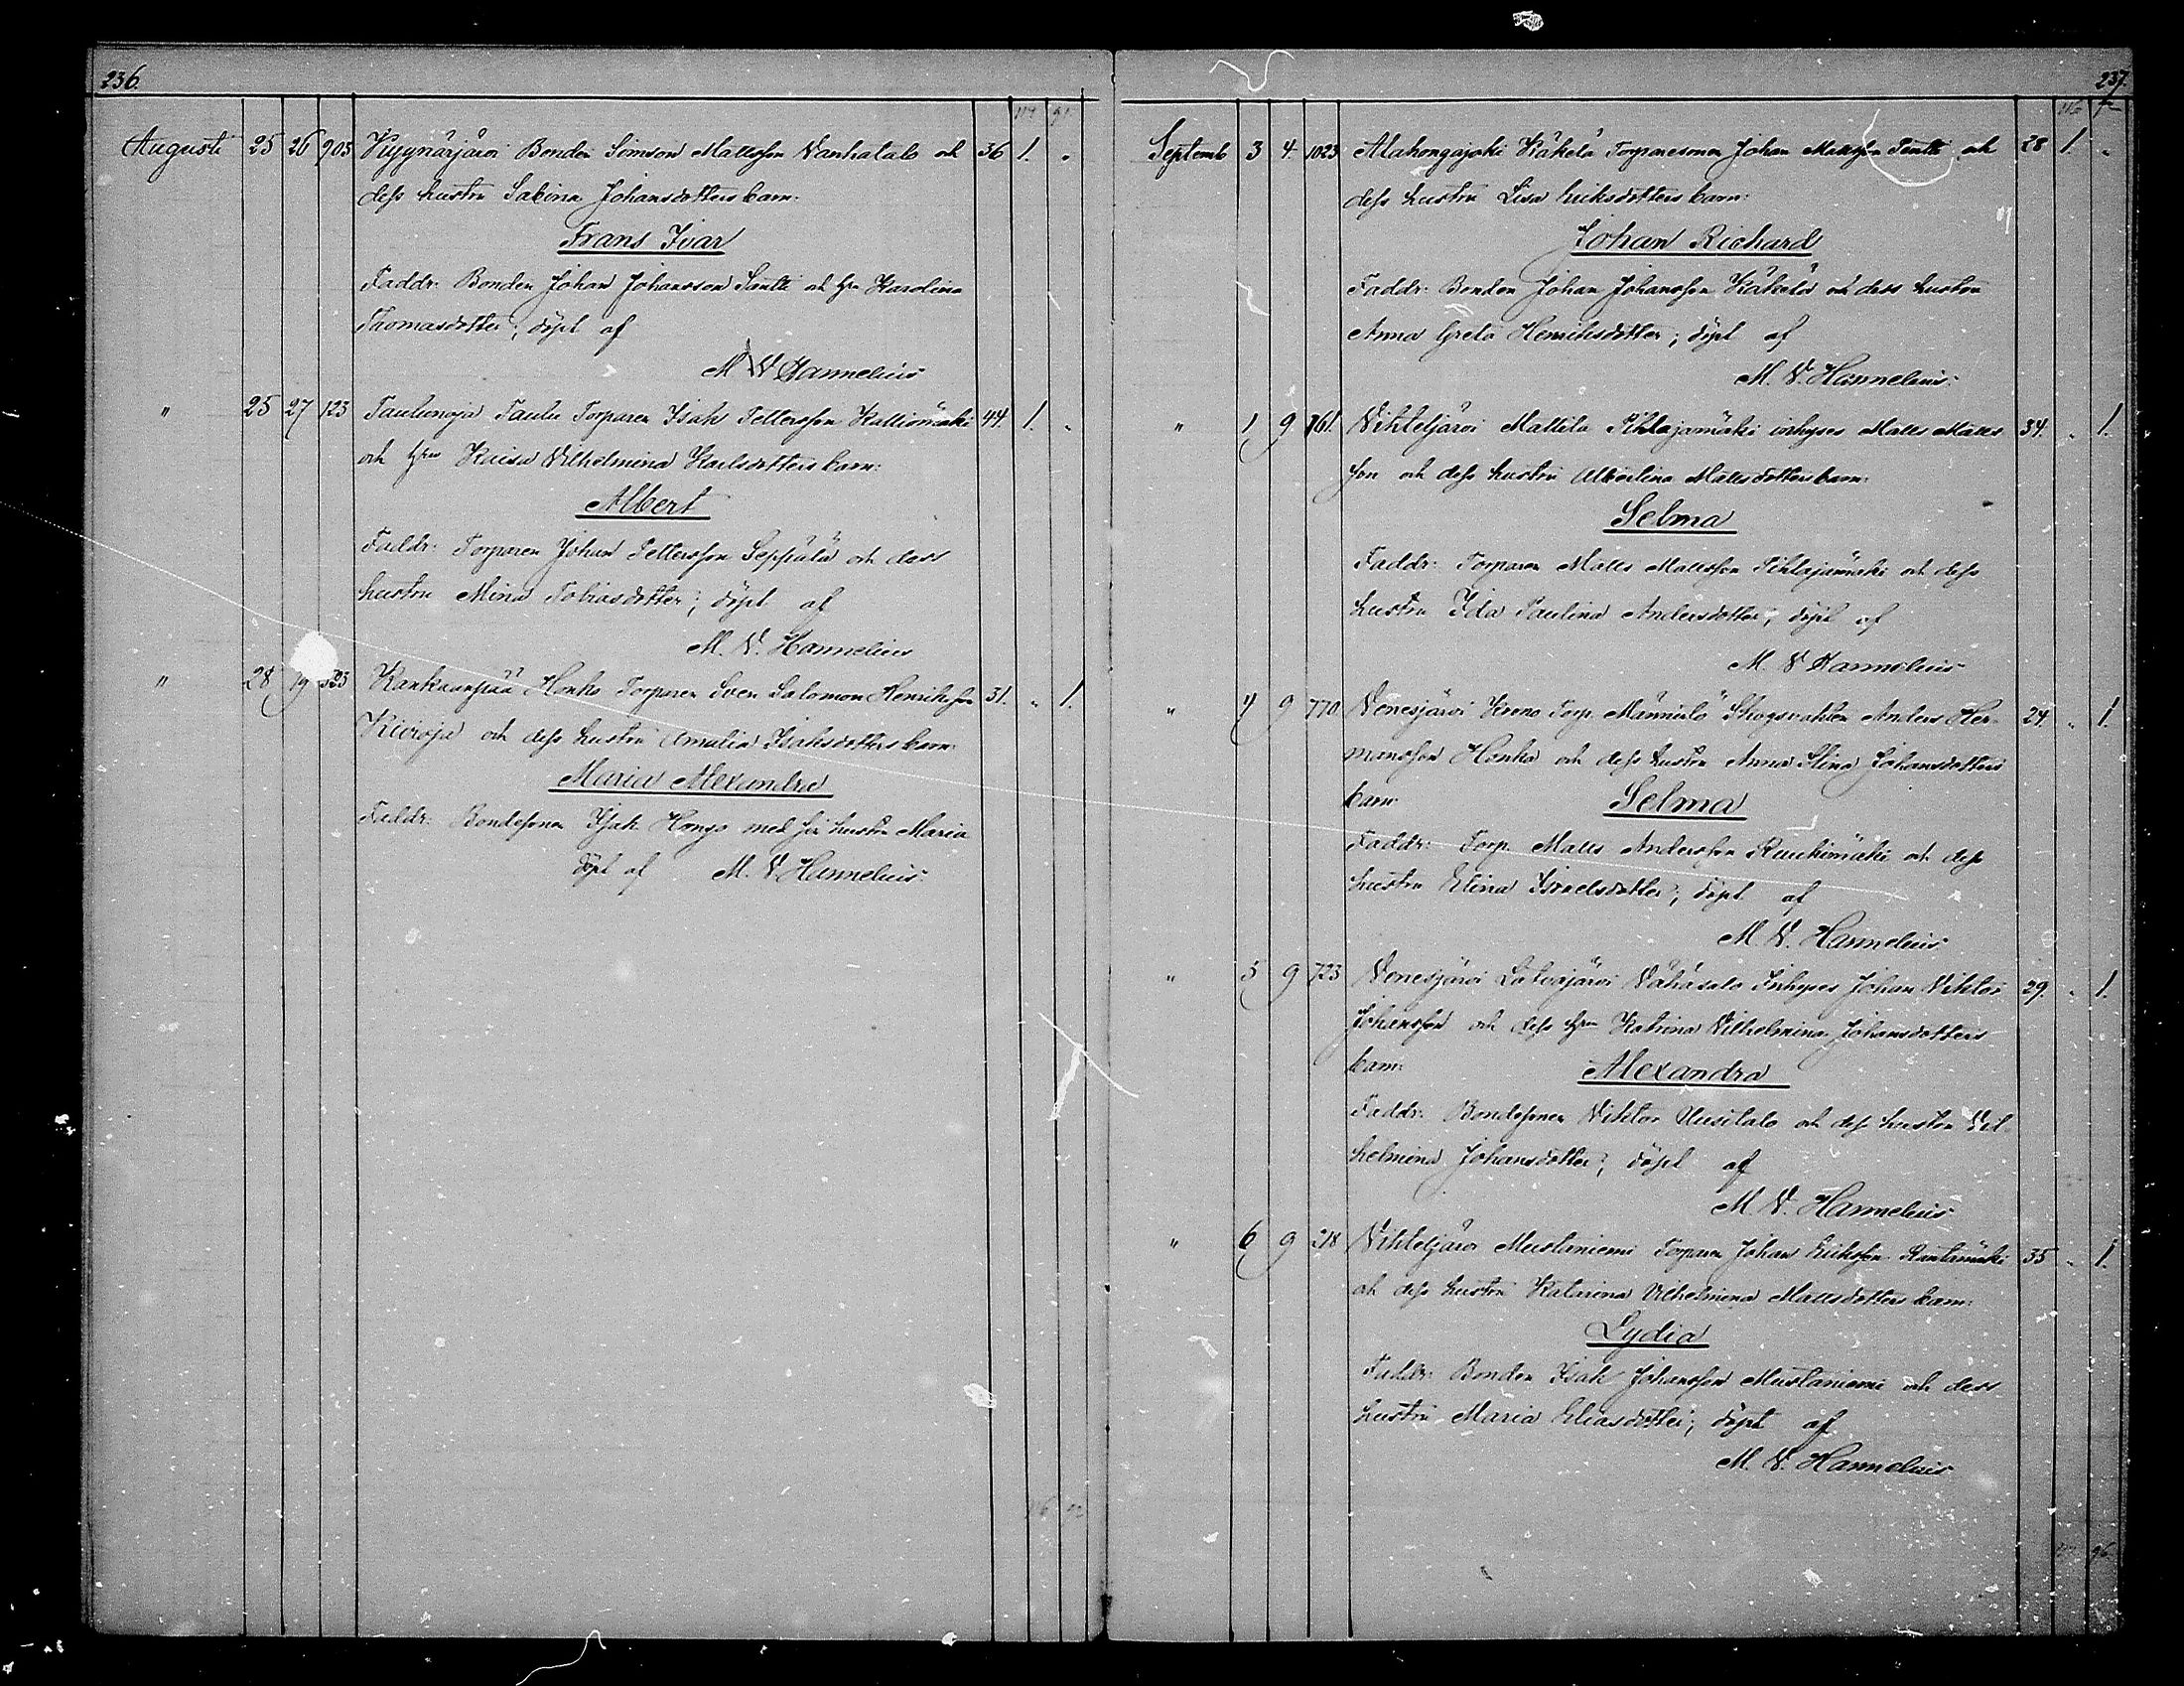 236.
Augusti 25 26 903 Vyynärjärvi Bonden Simson Mattsson Vanhatalo och 36 1. "
dess hustru Sabina Johansdotters barn:
Frans Ivar
Faddr: Bonden Johan Johansson Santti och h:n Karolina
Thomasdotter; döpt af
M W Hannelius
" 25 27 123 Taulunoja Taulu Torparen Isak Pettersson Kalliomäki 44. 1. "
och h:n Kaisa Vilhelmina Karlsdotters barn:
Albert
Faddr: Torparen Johan Pettersson Seppälä och dess
hustru Mina Tobiasdotter; döpt af
M. W. Hannelius
" 28 19 323 Kankaanpää Honko Torparen Sven Salomon Henriksson 31. " 1.
Kivioja och dess hustru Amalia Isaksdotters barn:
Maria Alexandra
Faddr: Bondesonen Isak Hongo med hustru Maria
döpt af M. W. Hannelius.
237.
Septemb 3 4. 1023 Alahongajoki Käkelä Torparesonen Johan Mattsson Pentti och 28 1. "
dess hustru Lisa Eriksdotters barn:
Johan Richard
Faddr: Bonden Johan Johansson Käkelä och dess hustru
Anna Greta Henriksdotter; döpt af
M. W. Hannelius.
" 1 9 761. Vihteljärvi Mattila Pihlajamäki inhyses Matts Matts- 34. " 1.
son och dess hustru Albertina Mattsdotters barn:
Selma
Faddr: Torparen Matts Mattsson Pihlajamäki och dess
hustru Ida Paulina Andersdotter; döpt af
M. W Hannelius
" 4 9 770 Venesjärvi Torp. Männistö Skogsvakten Anders Her- 24. " 1.
mansson Honka och dess hustru Anna Stina Johansdotters
barn: Selma
Faddr: Torp. Matts Andersson Raukomäki och dess
hustru Elina Israelsdotter; döpt af
M. W. Hannelius
" 5 9 723 Venesjärvi Latvajärvi Vähäsalo Inhyses Johan Viktor 29. " 1.
Johansson och dess h:n Katrina Vilhelmina Johansdotters
barn: Alexandra
Faddr: Bondesonen Viktor Uusitalo och dess hustru Vil-
helmina Johansdotter; döpt af
M. W. Hannelius
" 6 9 218 Vihteljärvi Mustaniemi Torparen Johan Eriksson Rantamäki 35 " 1.
och dess hustru Katarina Vilhelmina Mattsdotters barn:
Lydia
Faddr: Bonden Isak Johansson Mustaniemi och dess
hustru Maria Eliasdotter; döpt af
M. W. Hannelius